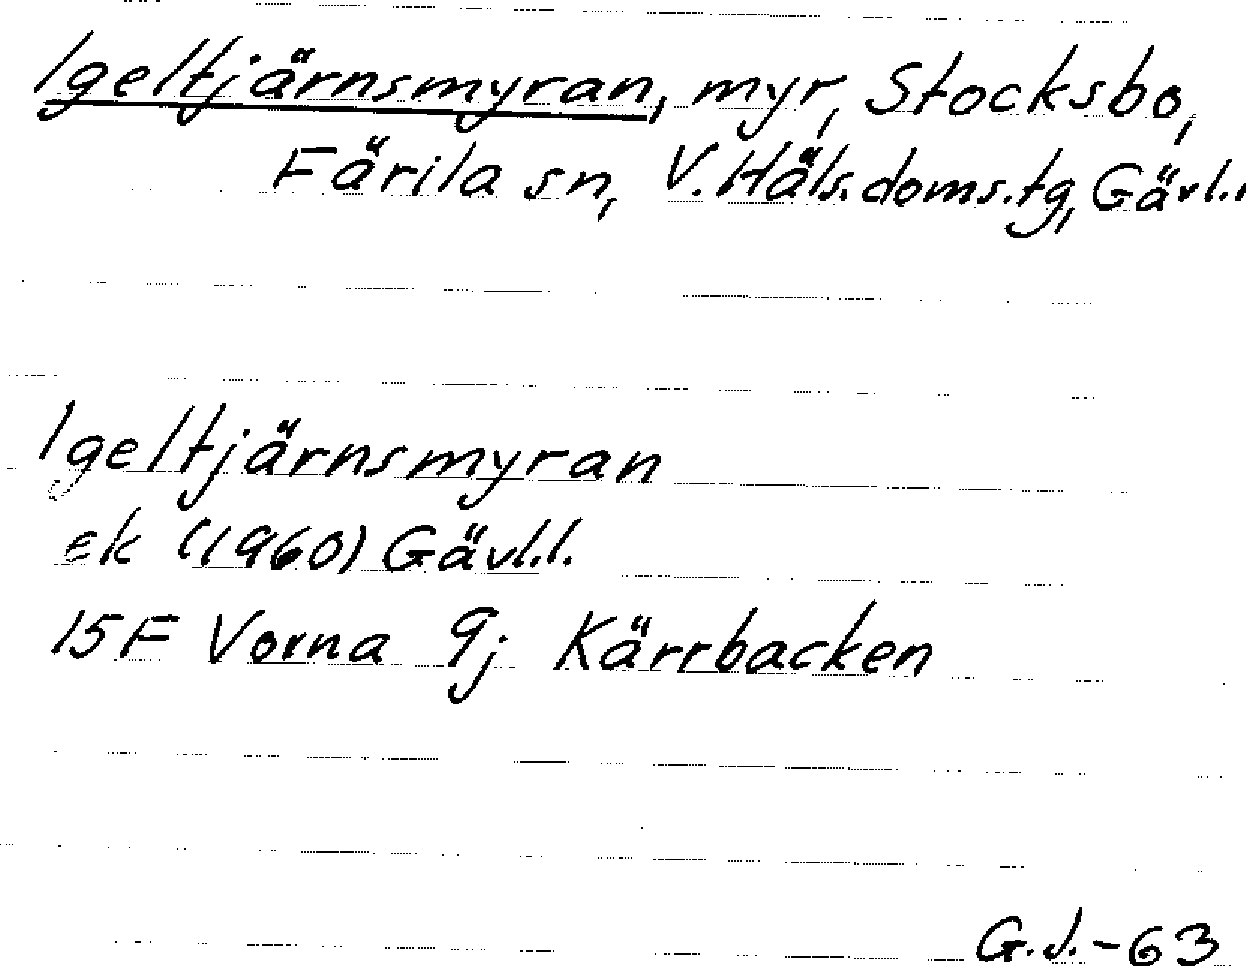 Igeltjärnsmyran, myr, Stocksbo,
Färila sn, V. Häls. doms. tg, Gävl.l
Igeltjärnsmyran
ek (1960) Gävl.l.
15F Vorna 9j Kärrbacken
G.J.-63